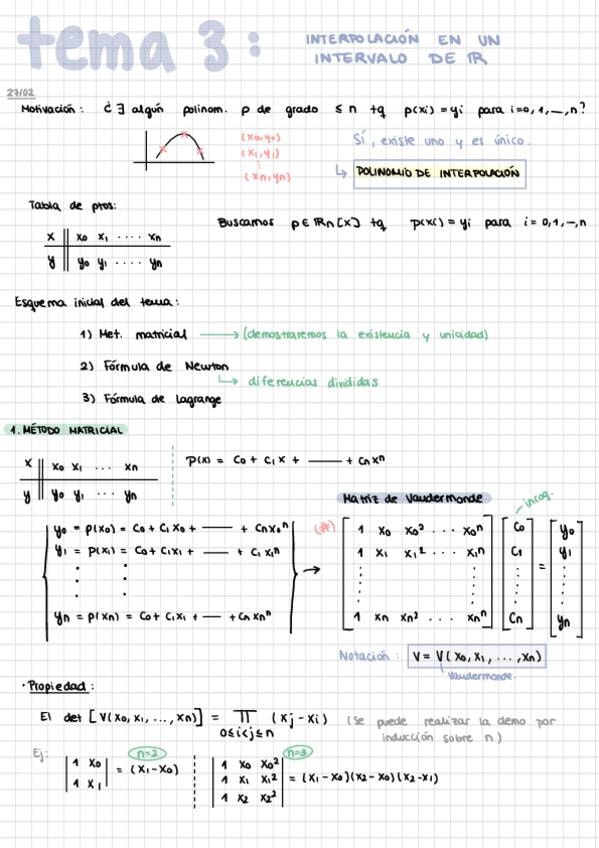 tema 3: INTERPOLACIÓN EN UN
INTERVALO DE ℝ
27/02
Motivación: ¿∃ algún polinom. p de grado ≤ n tq p(xi) = yi para i=0,1,—,n?
(x0,y0)
(x1,y1)
⋮
(xn,yn)
Sí, existe uno y es único.
↳ POLINOMIO DE INTERPOLACIÓN
Tabla de ptos:
x || x0 x1 ···· xn
y || y0 y1 ···· yn
Buscamos p ∈ ℝn[x] tq p(xi) = yi para i = 0,1,—,n
Esquema inicial del tema:
1) Met. matricial → (demostraremos la existencia y unicidad)
2) Fórmula de Newton
↳ diferencias divididas
3) Fórmula de Lagrange
1. MÉTODO MATRICIAL
x || x0 x1 ··· xn
y || y0 y1 ··· yn
p(x) = C0 + C1 x + —— + Cn x^n
Matriz de Vandermonde
incog.
y0 = p(x0) = C0 + C1 x0 + —— + Cn x0^n
y1 = p(x1) = C0 + C1 x1 + —— + C1 x1^n
⋮ ⋮
yn = p(xn) = C0 + C1 x1 + —— + Cn xn^n
→ (#)
1 x0 x0² ··· x0^n C0 = y0
1 x1 x1² ··· x1^n C1 y1
⋮ ⋮ ⋮ ⋮
1 xn xn² ··· xn^n Cn yn
Notación: V = V(x0, x1, ..., xn)
Vandermonde
· Propiedad:
El det [V(x0, x1, ..., xn)] = ∏ (xj - xi) (se puede realizar la demo por
0≤i<j≤n inducción sobre n)
Ej:
n=2
1 x0
1 x1
= (x1 - x0)
n=3
1 x0 x0²
1 x1 x1²
1 x2 x2²
= (x1 - x0)(x2 - x0)(x2 - x1)